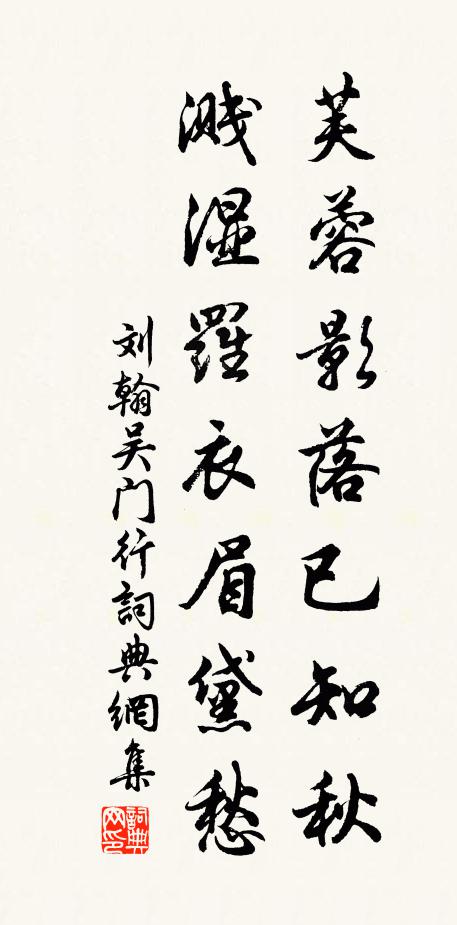 芙蓉影落已知秋
溅湿羅衣眉黛愁
刘翰吴门行詞典網集
詞典
网印